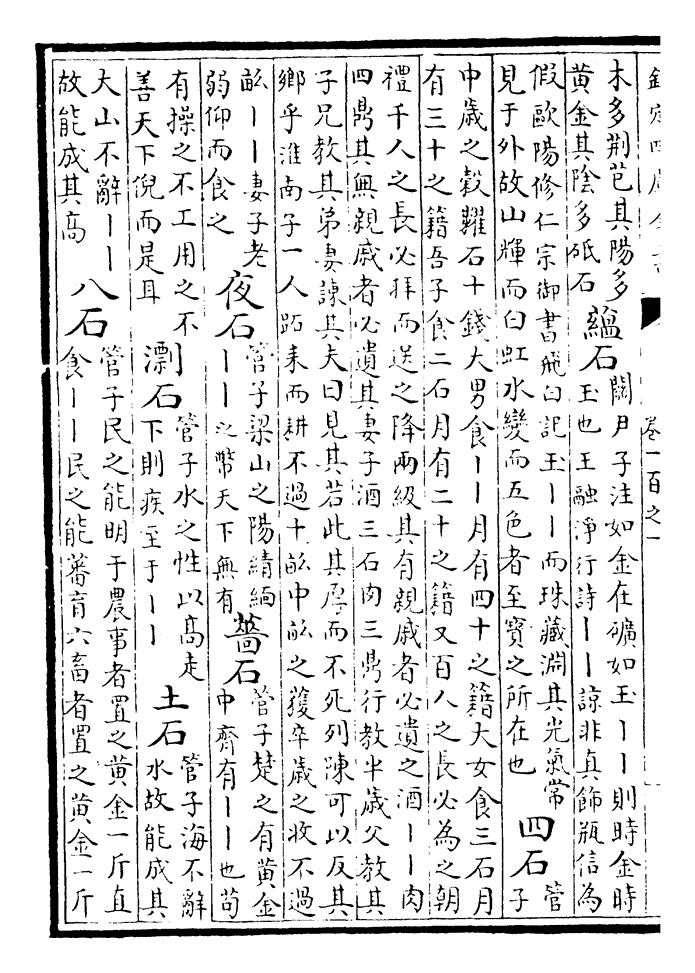 欽定四庫全書
卷一百之一
木多荆芑其陽多
黄金其陰多砥石
蘊石
關尹子注如金在礦如玉丨丨則時金時
玉也王融淨行詩丨丨諒非真飾瓶信為
假歐陽修仁宗御書飛白記玉丨丨而珠藏淵其光氣常
見于外故山輝而白虹水變而五色者至寶之所在也
四石
管
子
中歲之穀糶石十錢大男食丨丨月有四十之籍大女食三石月
有三十之籍吾子食二石月有二十之籍又百人之長必為之朝
禮千人之長必拜而送之降兩級其有親戚者必遺之酒丨丨肉
四鼎其無親戚者必遺其妻子酒三石肉三鼎行教半歲父教其
子兄教其弟妻諫其夫曰見其若此其厚而不死列陳可以反其
鄉乎淮南子一人跖耒而耕不過十畝中畝之穫卒歲之收不過
畝丨丨妻子老
弱仰而食之
夜石
管子梁山之陽綪緬
丨丨之幣天下無有
薔石
管子楚之有黄金
中齊有丨丨也苟
有操之不工用之不
善天下倪而是耳
漂石
管子水之性以高走
下則疾至于丨丨
土石
管子海不辭
水故能成其
大山不辭丨丨
故能成其高
八石
管子民之能明于農事者置之黄金一斤直
食丨丨民之能蕃育六畜者置之黄金一斤